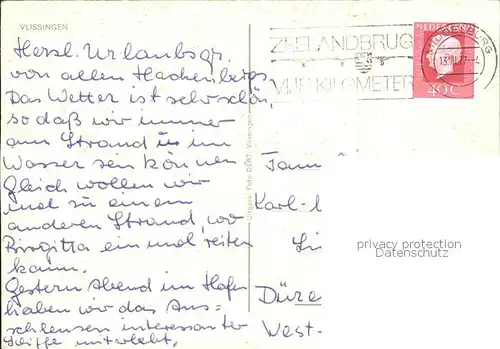 VLISSINGEN
Herzl. Urlaubsgr.
von allen Hachenbergs
Das Wetter ist sehr schön,
so daß wir immer
am Strand im
Wasser sein können
Gleich wollen wir
mal zu einem
anderen Strand, wo
Birgitta ein mal reiten
kann.
Gestern Abend im Hafen
haben wir das Aus-
schleusen interessanter
Schiffe miterlebt,
ZEELANDBRUG
VIJF KILOMETER
MIDDELBURG
NEDERLAND
40c
Fam
Karl-
Düre
West-
privacy protection
Datenschutz